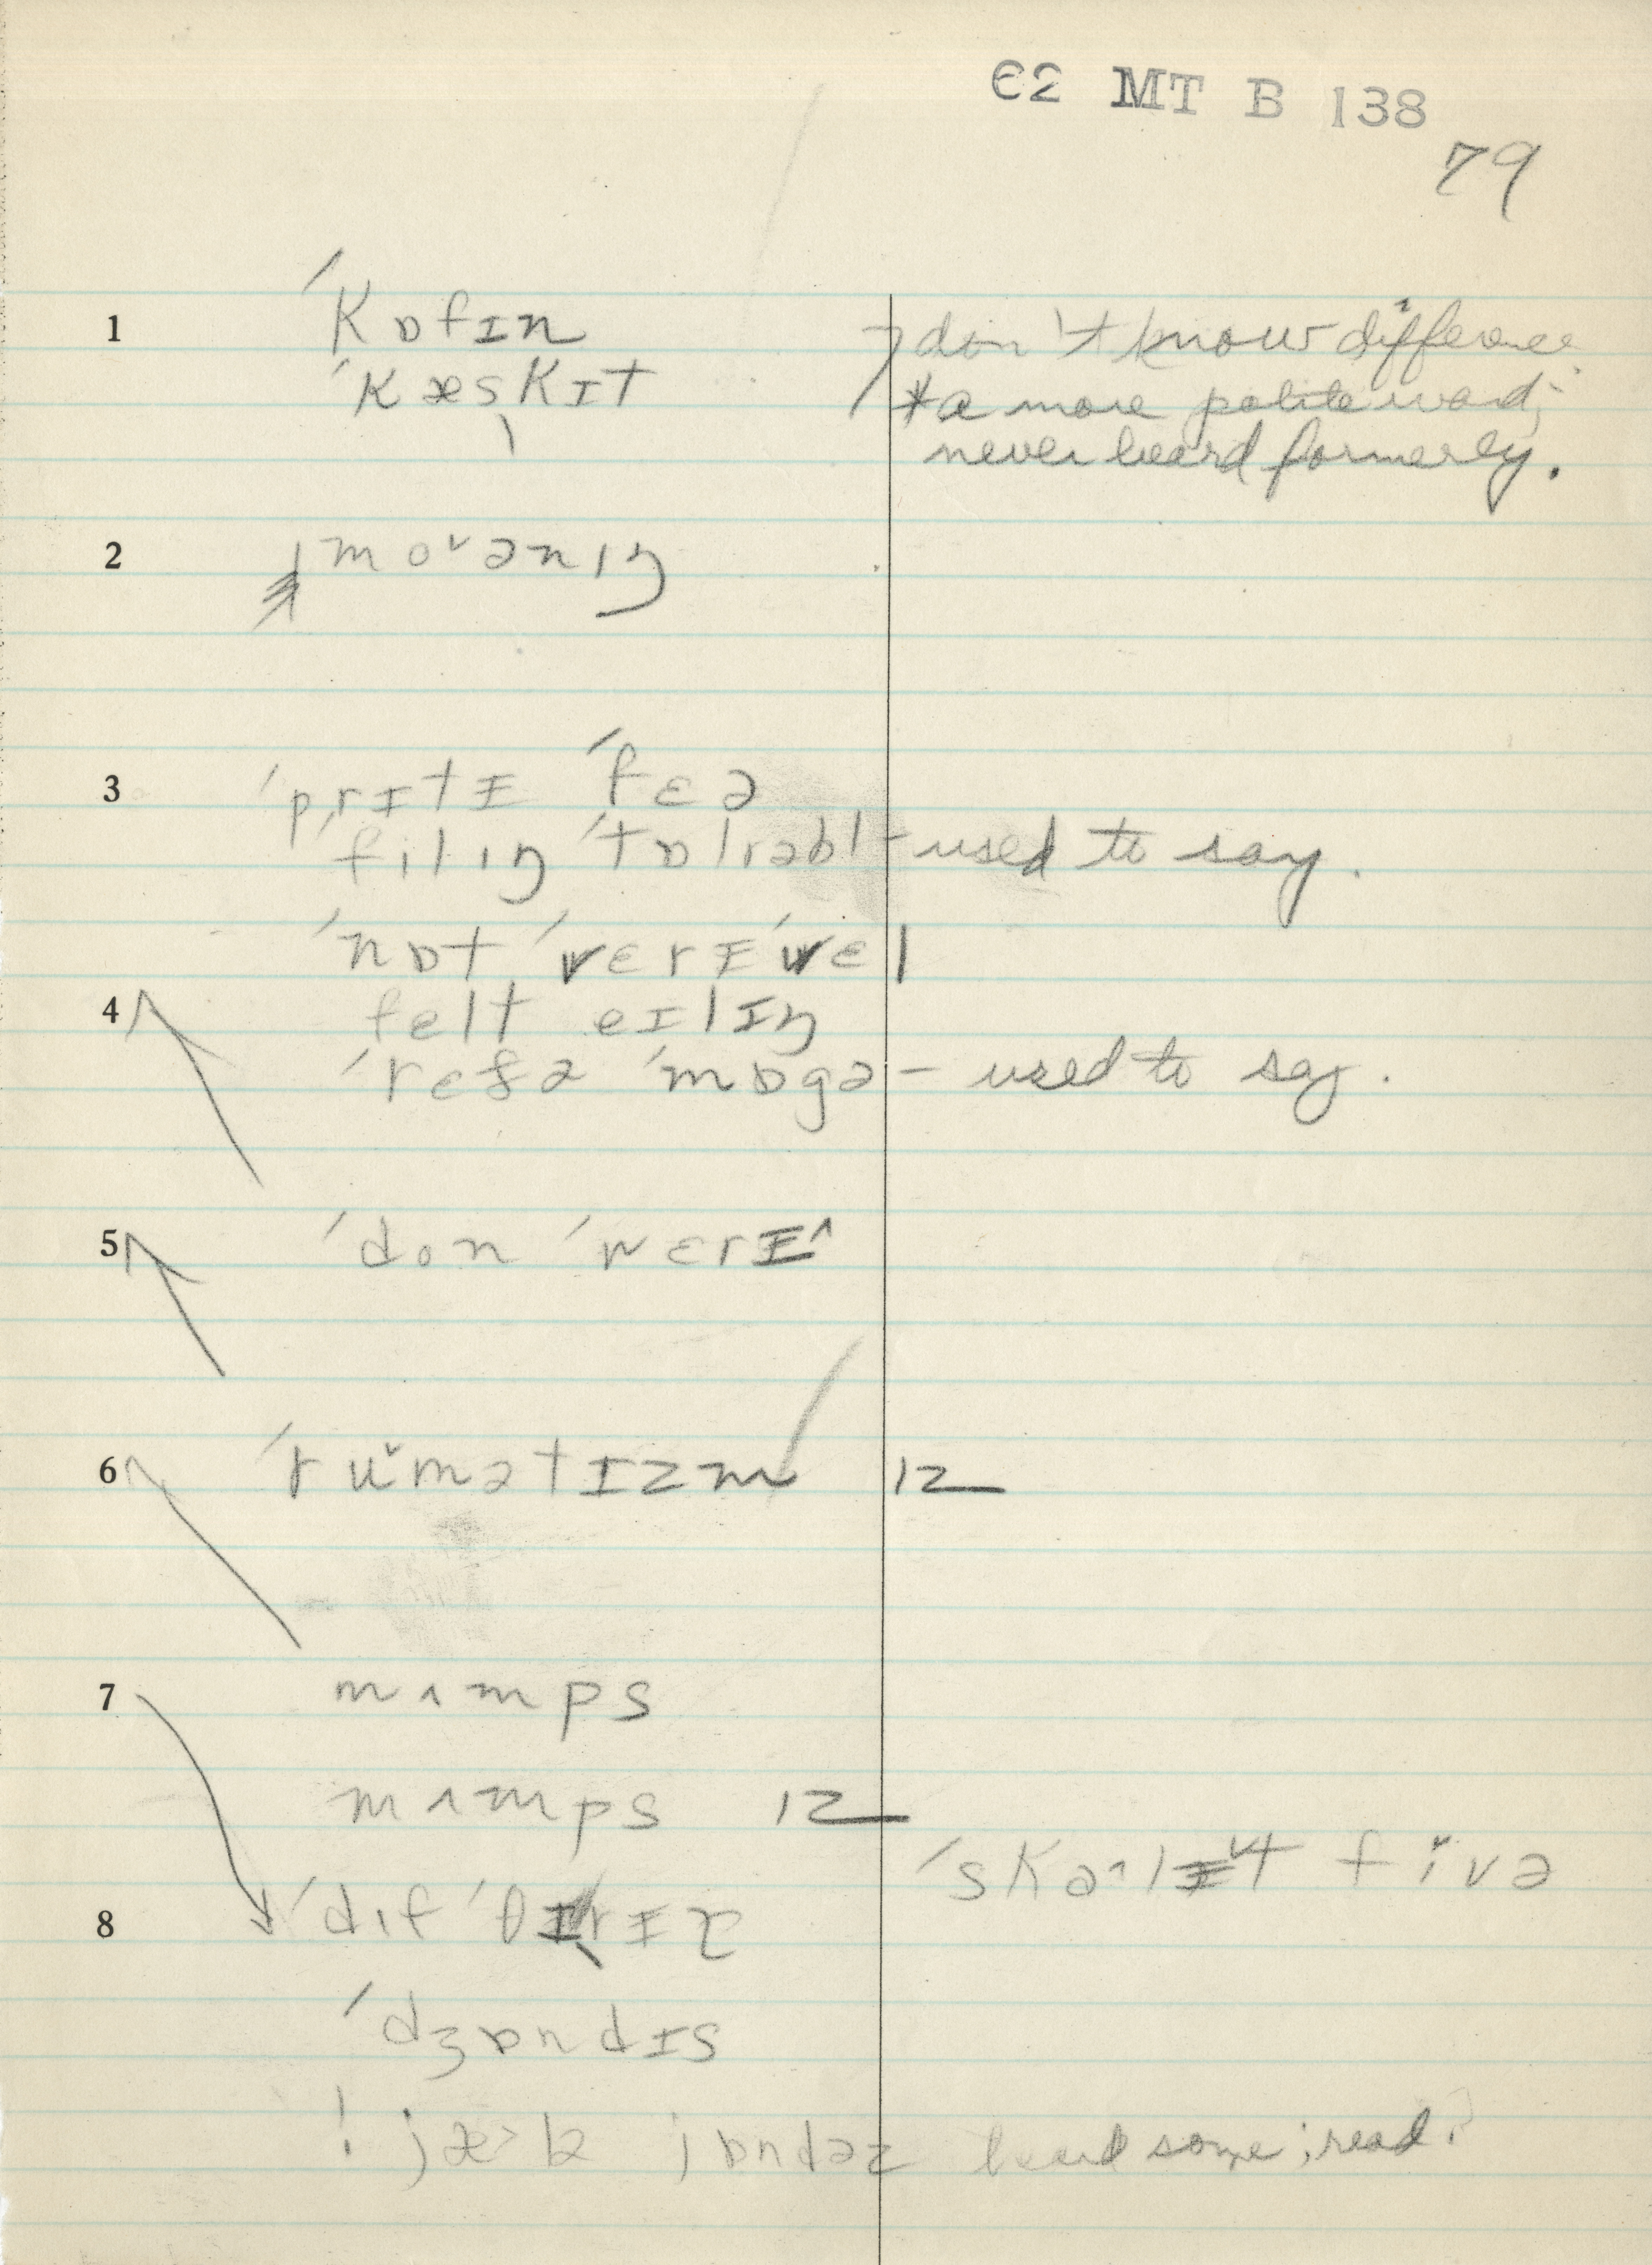 Є2 MT B 138
79
1 ˈkɒfɪn don't know difference
ˈkæskɪt *a more polite word;
never heard formerly.
2 mo˅ənɪŋ
3 ˈprɪtɪ ˈfɛə
filɪŋ ˈtɒlrəbl - used to say.
ˈnɒt ˈvɛrɪ ˈwɛl
4 felt eɪlɪŋ
ˈrefə ˈmɒgə - used to say.
5 ˈdon ˈwɛrɪ^
6 ˈru˅mətɪzm ɪz
7 mʌmps
mʌmps ɪz
ˈskɑ^lɪ˅t fi˅və
8 ˈdɪf ˈθɪrɪə
ˈdʒɒndɪs
! jæ>lə jɒndəz heard some; read?